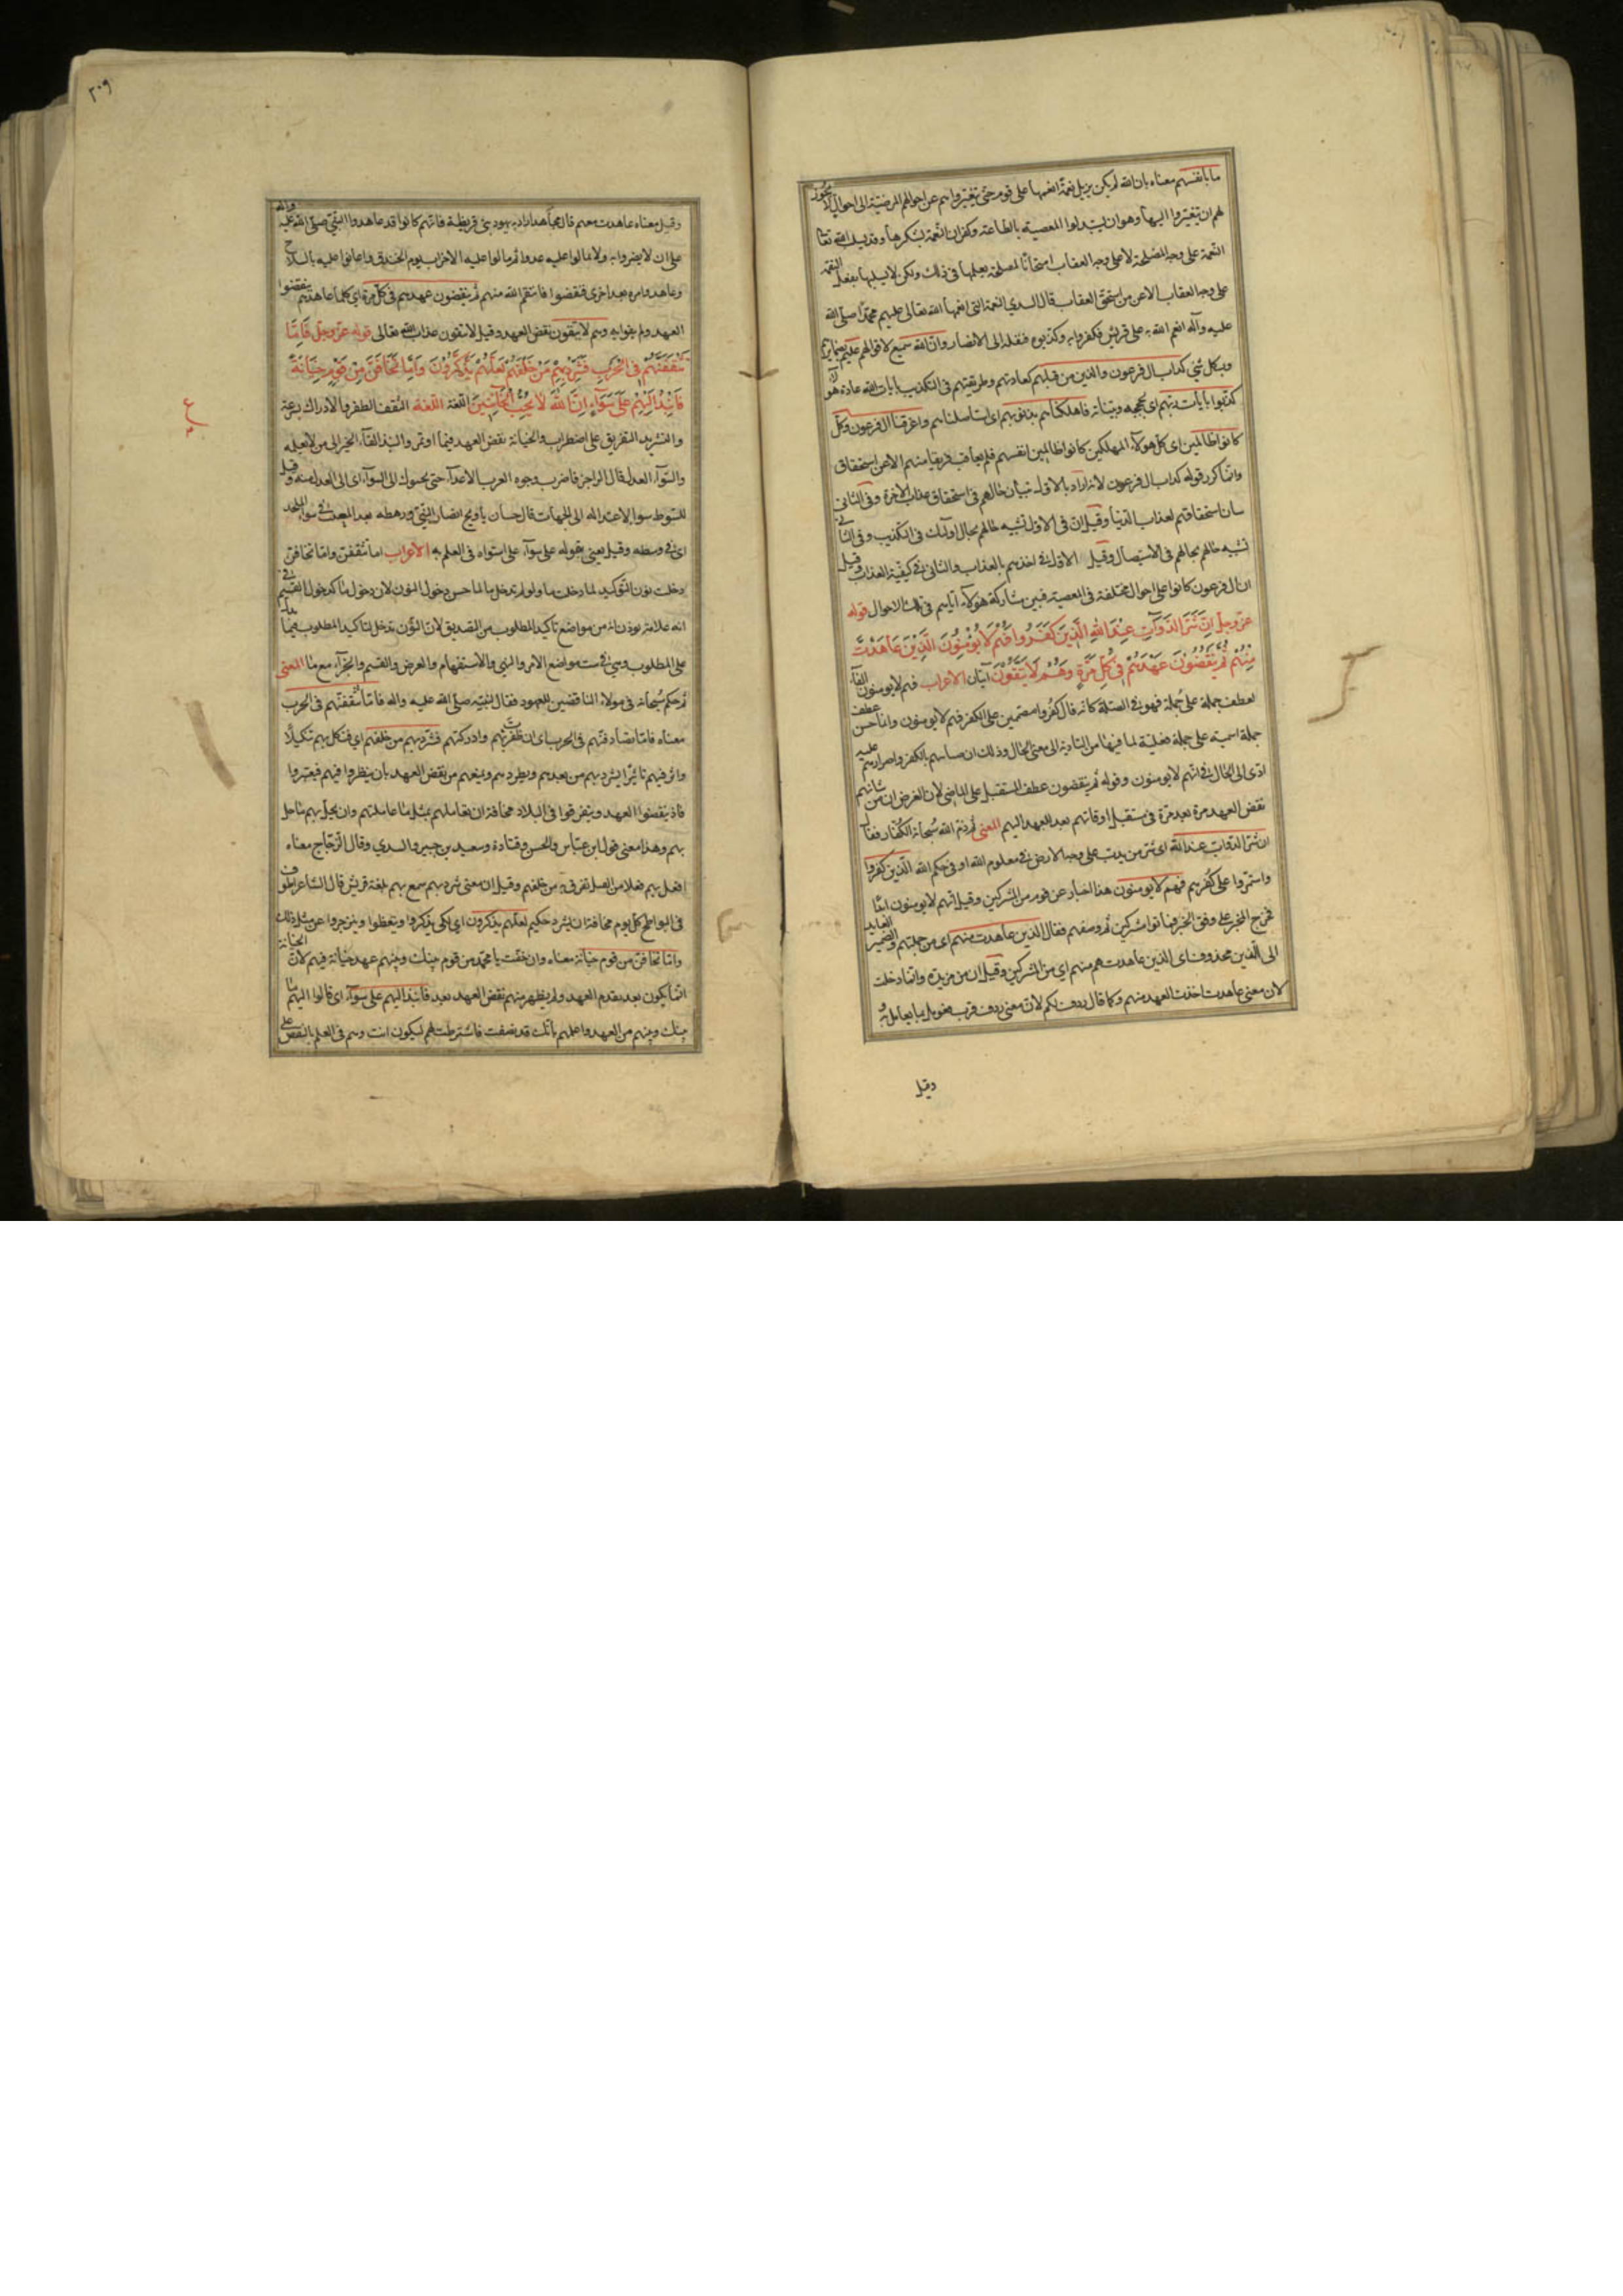 ما بانفسهم معناه بان الله لم يكن يزيل نعمة انعمها على قوم حتى يتغيروا هم عن احوالهم المرضية الى احوال لا يجوز
لهم ان يتغيروا اليها وهو ان يستبدلوا المعصية بالطاعة وكفران النعمة بشكرها وقد يسلب الله تعالى
النعمة على وجه المصلحة لا على وجه العقاب امتحانا لمصلحة يعلمها في ذلك ولكن لا يسلبها بفعل النقمة
على وجه العقاب الا عن من استحق العقاب قال السدي النعمة التي انعمها الله تعالى عليهم محمد صلى الله
عليه وآله انعم الله به على قريش فكفروا به وكذبوه فنقله الى الانصار وان الله سميع لاقوالهم عليم بضمايرهم
وبكل شيء كداب ال فرعون والذين من قبلهم كعادتهم وطريقتهم في التكذيب بايات الله عادة هؤلاء
كذبوا بايات ربهم اي بحججه وبيناته فاهلكناهم بذنوبهم اي استاصلناهم واغرقنا ال فرعون وكل
كانوا ظالمين اي كل هؤلاء المهلكين كانوا ظالمين انفسهم فلم يعاقب فريقا منهم الا عن استحقاق
وانما كرر قوله كداب ال فرعون لانه اراد بالاول بيان حالهم في استحقاق عذاب الاخرة وفي الثاني
بيان استحقاقهم لعذاب الدنيا وقيل ان في الاول تشبيه حالهم بحال اولئك في التكذيب وفي الثاني
تشبيه حالهم بحالهم في الاستيصال وقيل الاول في اخذهم بالعذاب والثاني في كيفية العذاب وقيل
ان ال فرعون كانوا على احوال مختلفة في المعصية فبين مشاركة هؤلاء اياهم في تلك الاحوال قوله
عز وجل اِنَّ شَرَّ الدَّوَآبِّ عِنْدَ اللهِ الَّذِينَ كَفَرُوا فَهُمْ لَا يُؤْمِنُونَ الَّذِينَ عَاهَدْتَ
مِنْهُمْ ثُمَّ يَنْقُضُونَ عَهْدَهُمْ فِي كُلِّ مَرَّةٍ وَهُمْ لَا يَتَّقُونَ آيتان الاعراب فهم لا يومنون الفاء
لعطف جملة على جملة فهو في الصلة كانه قال كفروا مصممين على الكفر فهم لا يومنون وانما حسن عطف
جملة اسمية على جملة فعلية لما فيها من التادية الى معنى الحال وذلك ان صبابتهم بالكفر واصرارهم عليه
ادى الى الحال في انهم لا يومنون وقوله ثم ينقضون عطف المستقبل على الماضي لان الغرض ان من شانهم
نقض العهد مرة بعد مرة في مستقبل اوقاتهم بعد العهد اليهم المعنى ثم ذم الله سبحانه الكفار فقال
ان شر الدواب عند الله اي شر من يدب على وجه الارض في معلوم الله او في حكم الله الذين كفروا
واستمروا على كفرهم فهم لا يومنون هذا اخبار عن قوم من المشركين وقيل انهم لا يومنون ابدا
فخرج المخبر على وفق الخبر فماتوا مشركين ثم وصفهم فقال الذين عاهدت منهم اي من جملتهم والضمير العايد
الى الذين محذوف اي الذين عاهدتهم منهم اي من المشركين وقيل ان من مزيدة وانما دخلت
لان معنى عاهدت اخذت العهد منهم وكما قال ردف لكم لان معنى ردف قرب فعومل بما يعامل به
وقيل
٢٠٩
وقيل معناه عاهدت معهم قال مجاهد اراد به يهود بني قريظة فانهم كانوا قد عاهدوا النبي صلى الله عليه واله
على ان لا يضروا به ولا يمالوا عليه عدوا ثم مالوا عليه الاحزاب يوم الخندق واعانوا عليه بالسلاح
وعاهدوا مرة بعد اخرى فنقضوا فانتقم الله منهم ثم ينقضون عهدهم في كل مرة اي كلما عاهدتهم نقضوا
العهد ولم يفوا به وهم لا يتقون نقض العهد وقيل لا يتقون عذاب الله تعالى قوله عز وجل فَاِمَّا
تَثْقَفَنَّهُمْ فِي الْحَرْبِ فَشَرِّدْ بِهِمْ مَنْ خَلْفَهُمْ لَعَلَّهُمْ يَذَّكَّرُونَ وَاِمَّا تَخَافَنَّ مِنْ قَوْمٍ خِيَانَةً
فَانْبِذْ اِلَيْهِمْ عَلَى سَوَآءٍ اِنَّ اللهَ لَا يُحِبُّ الْخَائِنِينَ اللغة اللغة الثقف الظفر والادراك بسرعة
والتشريد التفريق على اضطراب والخيانة نقض العهد فيما اوتمن والنبذ القاء الخبر الى من لا يعلمه
والسواء العدل قال الراجز فاضرب وجوه الغرب الاعداء حتى يجيبوك الى السواء اي الى العدل منه وقيل
للسوط سواء لاعتداله الى الجهات قال حسان يا ويح انصار النبي ورهطه بعد المغيب في سواء الملحد
اي في وسطه وقيل يعني بقوله على سواء على استواء في العلم به الاعراب اما تثقفن واما تخافن
دخلت نون التوكيد لما دخلت ما ولو لم تدخل ما لما حسن دخول النون لان دخول ما كدخول القسم في
انه علامة تؤذن انه من مواضع تاكيد المطلوب من التصديق لان النون تدخل لتاكيد المطلوب بما يدل
على المطلوب وهي في ست مواضع الامر والنهي والاستفهام والعرض والقسم والجزاء مع ما المعنى
ثم حكم سبحانه في هولاء الناقضين للعهود فقال لنبيه صلى الله عليه واله فاما تثقفنهم في الحرب
معناه فاما تصادفنهم في الحرب اي ان ظفرت بهم وادركتهم فشرد بهم من خلفهم اي فنكل بهم تنكيلا
واثر فيهم تاثيرا يشرد بهم من بعدهم ويطردهم ويمنعهم من نقض العهد بان ينظروا فيهم فيعتبروا
فلا ينقضوا العهد ويتفرقوا في البلاد مخافة ان تعاملهم بمثل ما عاملتهم وان يحل بهم ما حل
بهم وهذا معنى قول ابن عباس والحسن وقتادة وسعيد بن جبير والسدي وقال الزجاج معناه
افعل بهم فعلا من القتل تفرق به من خلفهم وقيل ان معنى شرد بهم سمع بهم بلغة قريش قال الشاعر اطوف
في الاباطح كل يوم مخافة ان يشرد بي حكيم لعلهم يذكرون اي لكي يذكروا ويتعظوا وينزجروا عن مثل ذلك
واما تخافن من قوم خيانة معناه وان خفت يا محمد من قوم بينك وبينهم عهد خيانة فيهم لان الخيانة
انما تكون بعد تقدم العهد ولم يظهر منهم نقض العهد بعد فانبذ اليهم على سواء اي فالق اليهم ما
بينك وبينهم من العهد واعلمهم بانك قد نقضت ما شرطت لهم ليكون انت وهم في العلم بالنقض على